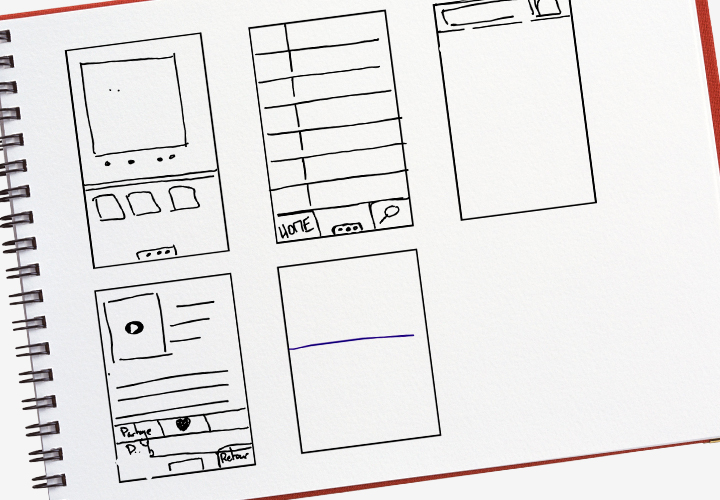 HOME
Partage
Retour